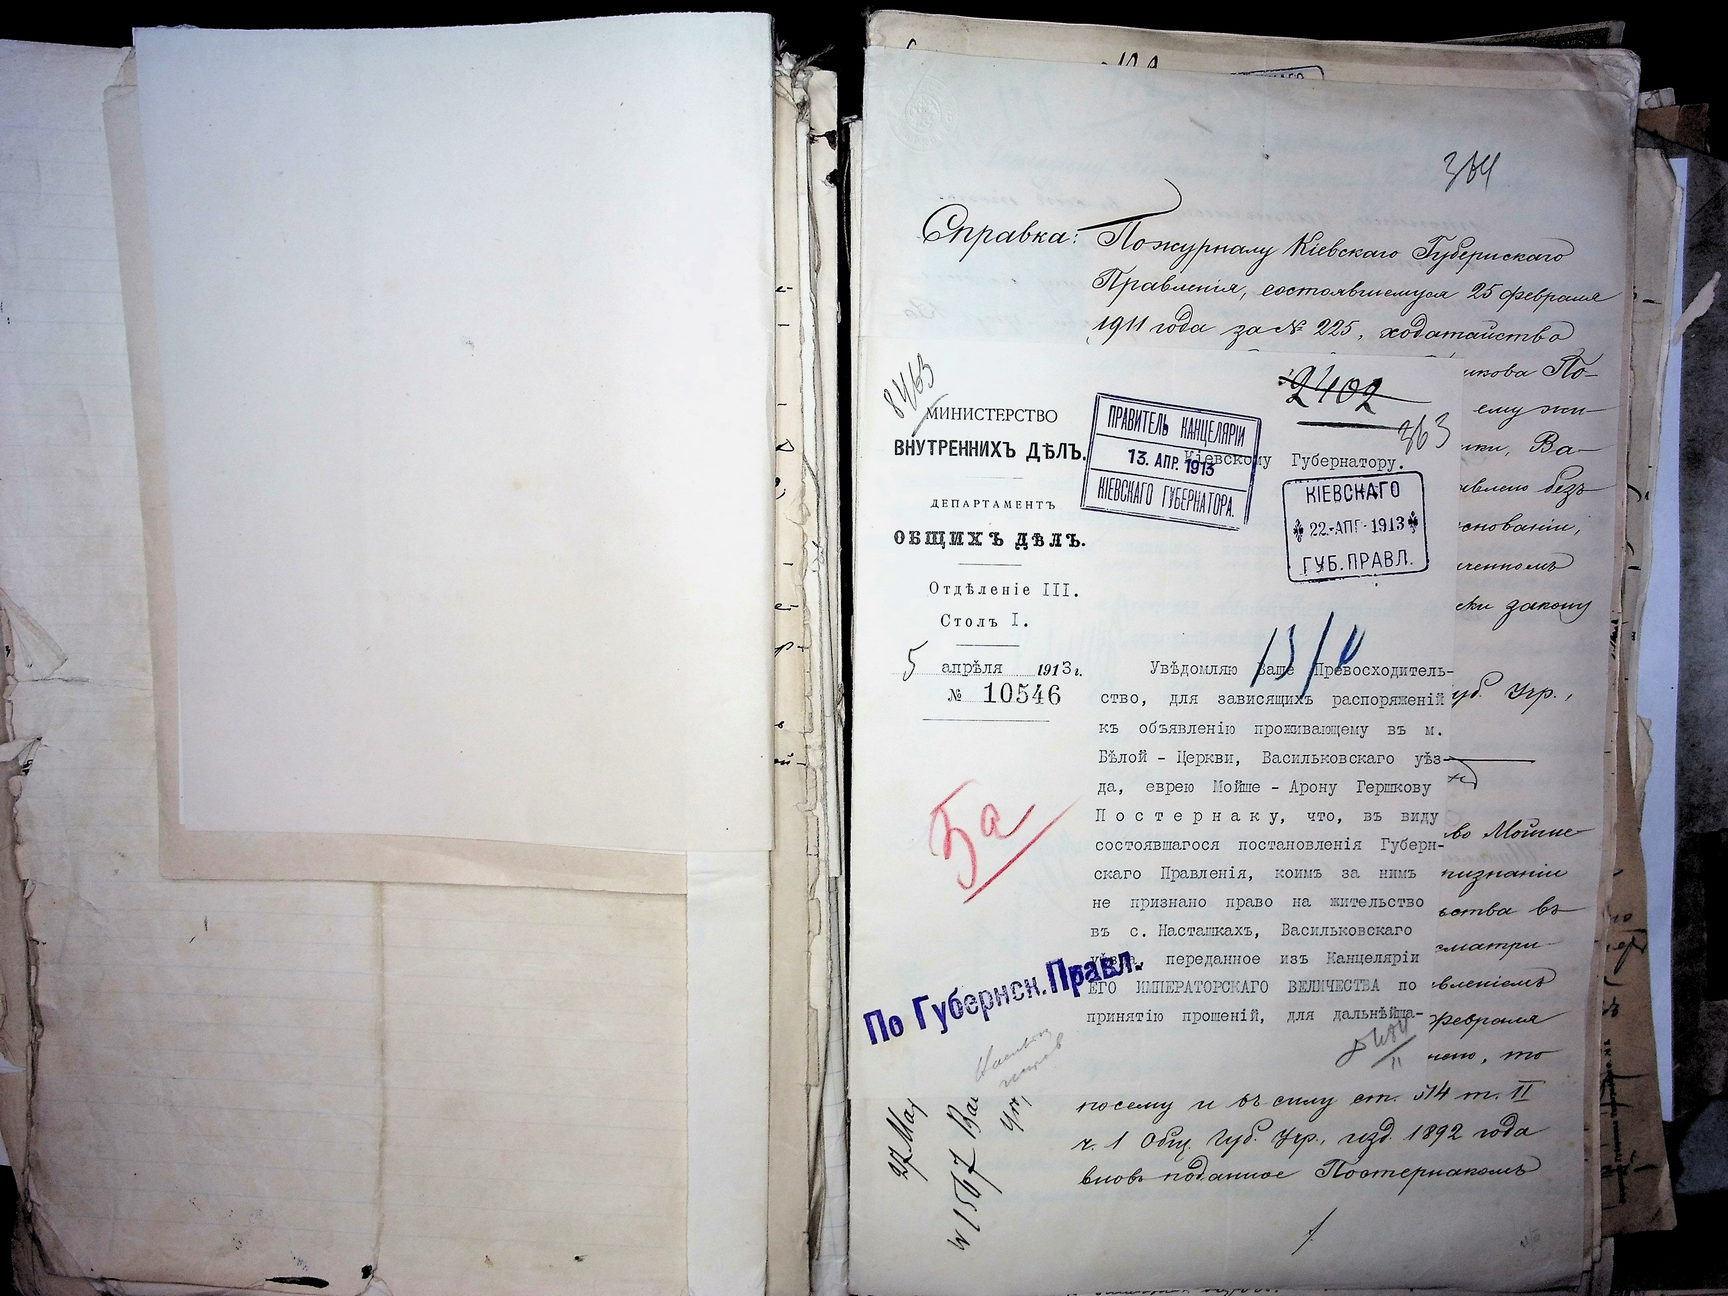 364
Справка: По журналу Кіевскаго Губернскаго
Правленія, состоявшемуся 25 февраля
1911 года за № 225, ходатайство
икова По-
ему жи-
ики, Ва-
авлено безъ
снованіи,
ченномъ
ски закону
уб. Учр.,
во Мойше
признаніи
ьства въ
сматри-
вленіемъ
февраля
чено, то
посему и въ силу ст. 314 т. II
ч. 1 Общ. Губ. Учр., изд. 1892 года
вновь поданное Постернакомъ
8463
МИНИСТЕРСТВО
ВНУТРЕННИХЪ ДѢЛЪ.
ДЕПАРТАМЕНТЪ
ОБЩИХЪ ДѢЛЪ.
Отдѣленіе III.
Столъ I.
5 апрѣля 1913 г.
№ 10546
2402
363
ПРАВИТЕЛЬ КАНЦЕЛЯРІИ
13. АПР. 1913
КІЕВСКАГО ГУБЕРНАТОРА.
Кіевскому Губернатору.
КІЕВСКАГО
22-АПР-1913
ГУБ. ПРАВЛ.
13/IV
Увѣдомляю Ваше Превосходитель-
ство, для зависящихъ распоряженій
къ объявленію проживающему въ м.
Бѣлой - Церкви, Васильковскаго уѣз-
да, еврею Мойше - Арону Гершкову
Постернаку, что, въ виду
состоявшагося постановленія Губерн-
скаго Правленія, коимъ за нимъ
не признано право на жительство
въ с. Насташкахъ, Васильковскаго
уѣзда, переданное изъ Канцеляріи
ЕГО ИМПЕРАТОРСКАГО ВЕЛИЧЕСТВА по
принятію прошеній, для дальнѣйша-
5а
По Губернск. Правл.
27 Мая
№ 1567